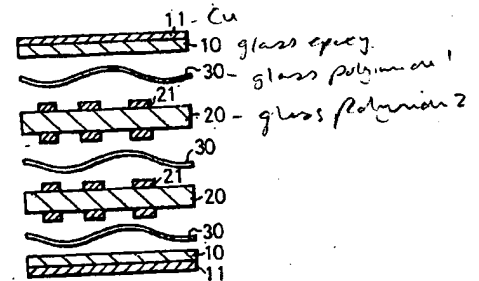 11 - Cu
10 glass epoxy
30 - glass polyimide 1
21
20 - glass polyimide 2
30
21
20
30
10
11